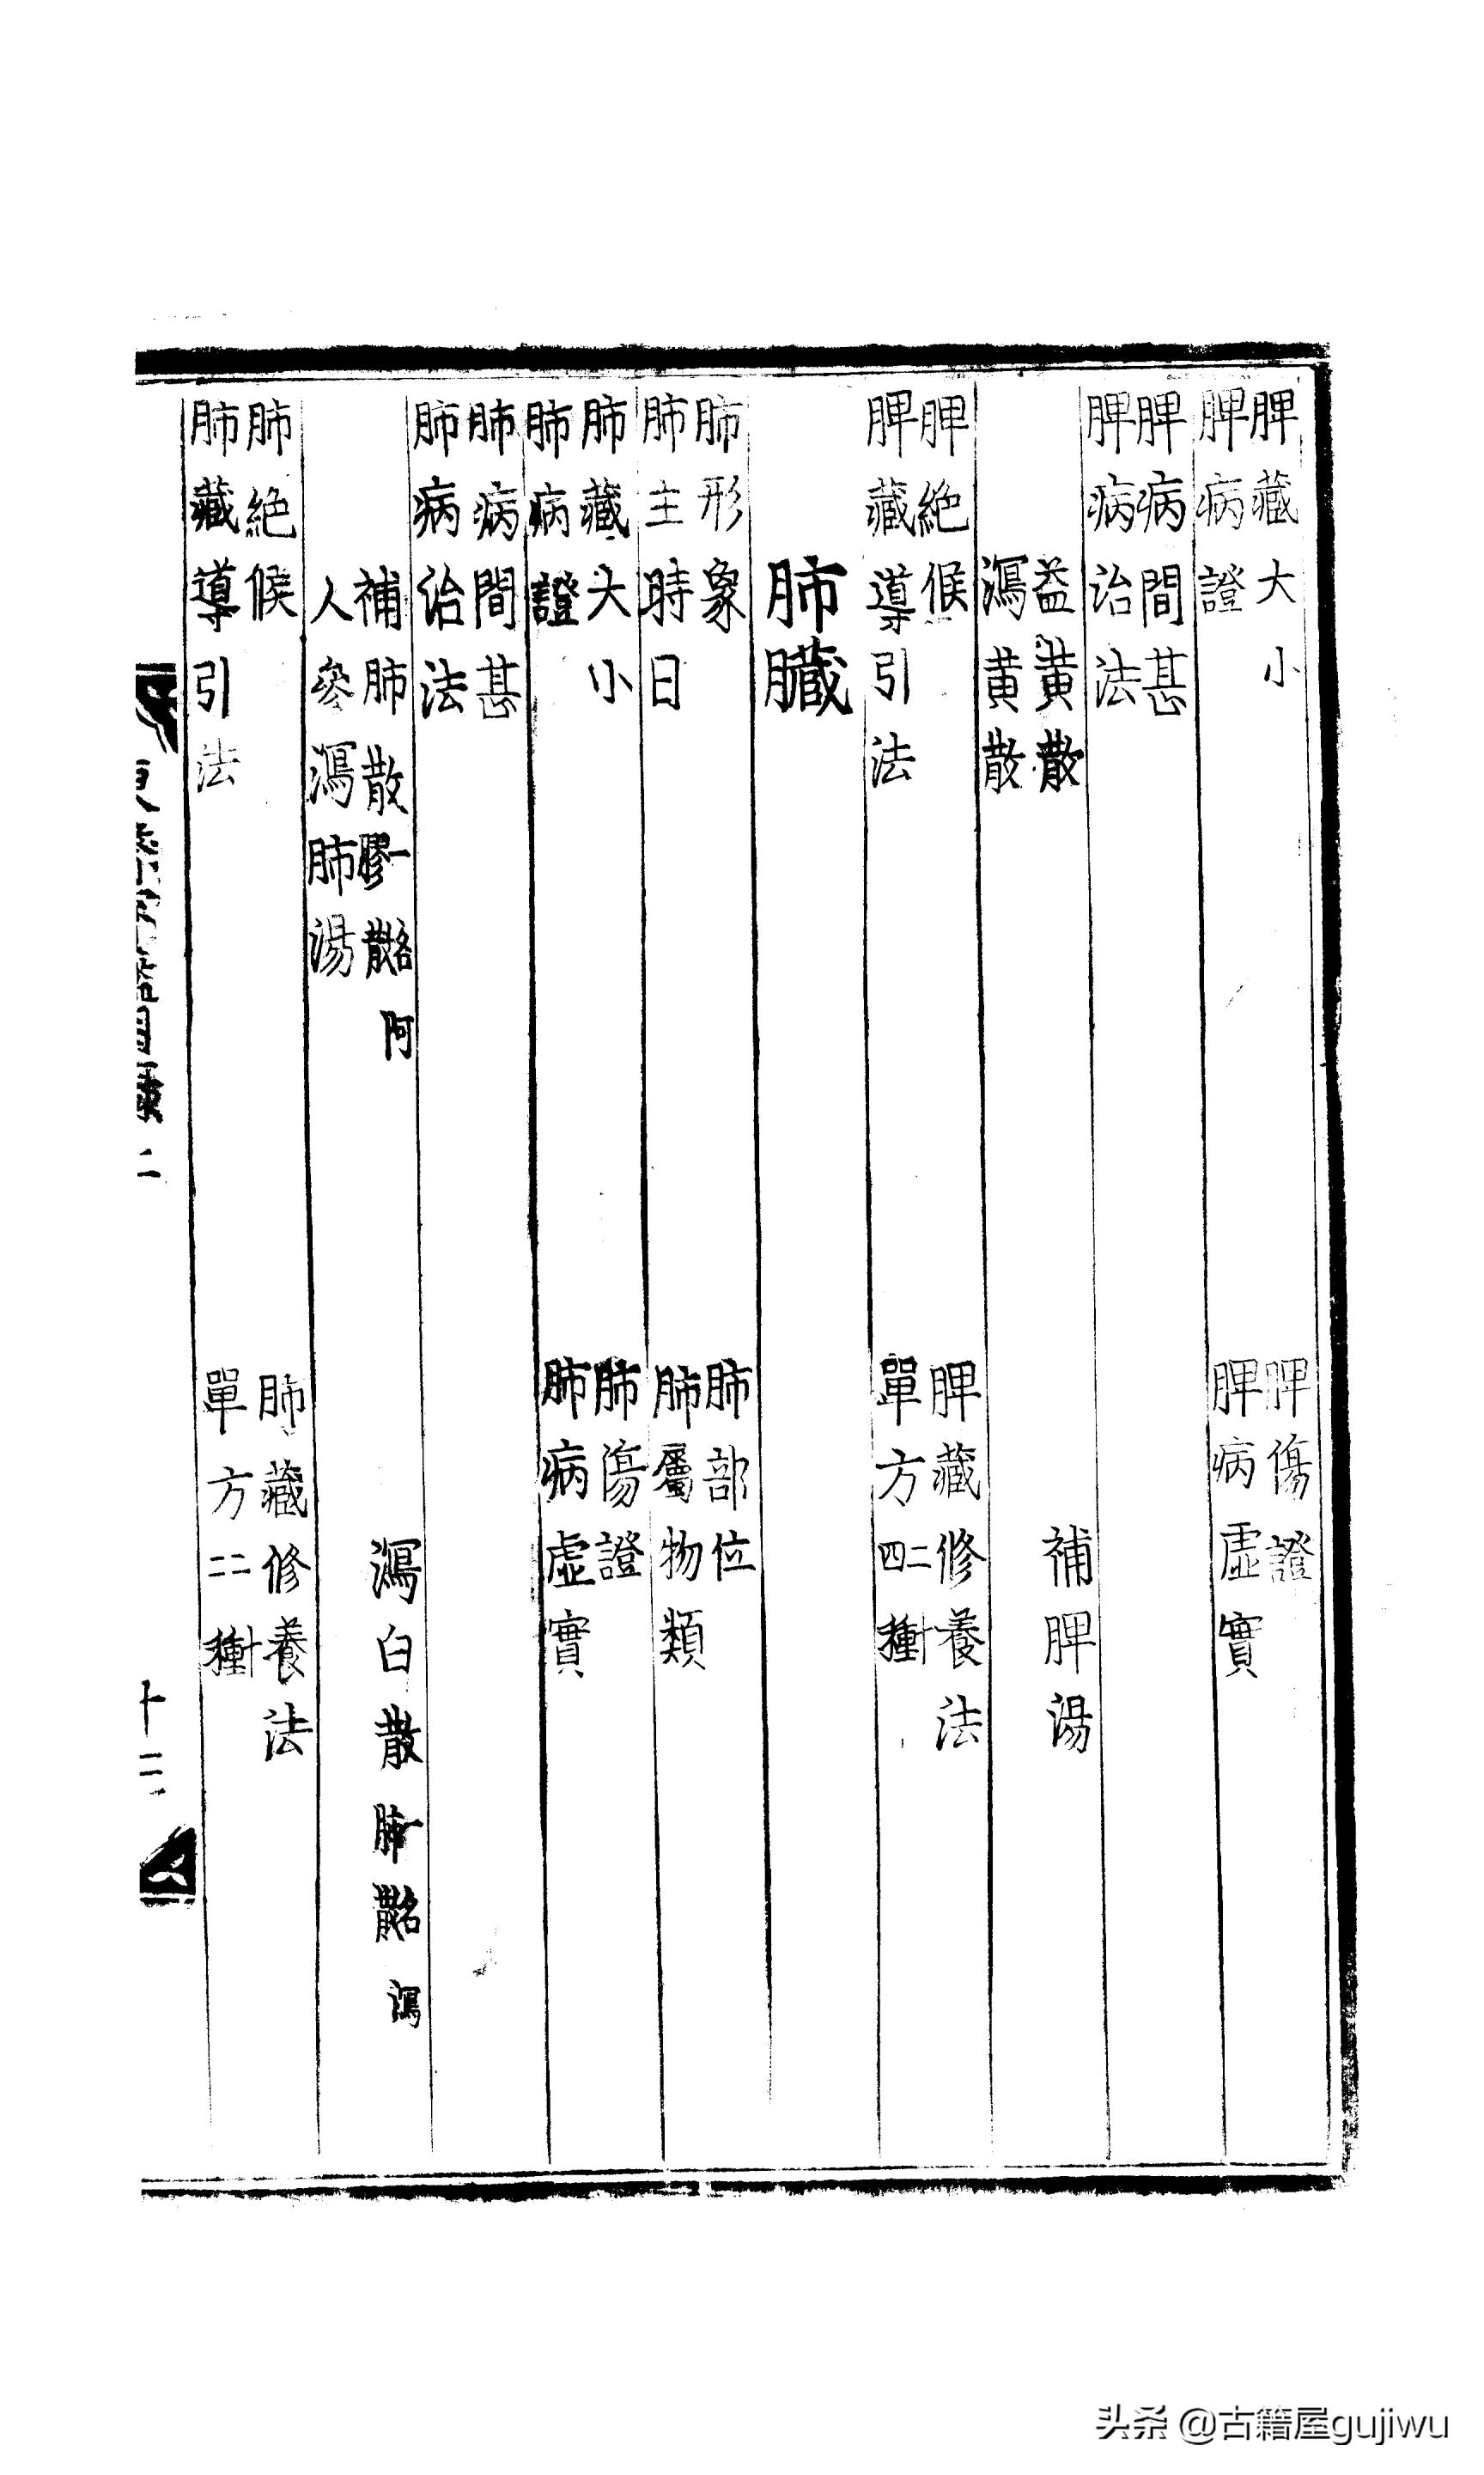 脾藏大小 脾傷證
脾病證 脾病虛實
脾病間甚
脾病治法
益黃散 補脾湯
瀉黃散
脾絶候 脾藏修養法
脾藏導引法 單方二十四種
肺臟
肺形象 肺部位
肺主時日 肺屬物類
肺藏大小 肺傷證
肺病證 肺病虛實
肺病間甚
肺病治法
補肺散一名阿膠散 瀉白散一名瀉肺散
人參瀉肺湯
肺絶候 肺藏修養法
肺藏導引法 單方二十二種
目錄二 十二
头条 @古籍屋gujiwu